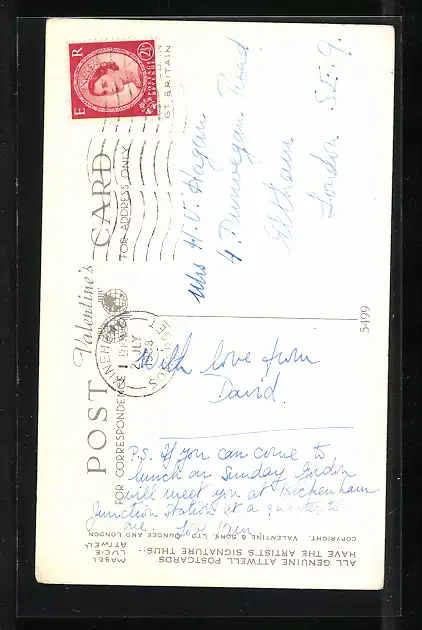 E R
2½D
POSTAGE REVENUE
GT. BRITAIN
Valentine's
POST CARD
FOR CORRESPONDENCE
FOR ADDRESS ONLY
MINEHEAD
2 JLY
1958
SOMERSET
Mrs H. V. Hagan
4. Dunvegan Road
Eltham
London S.E. 9.
With love from
David.
P.S. If you can come to
lunch on Sunday Gordon
will meet you at Bickenham
Junction Station at a quarter to
one. Love
5499
ALL GENUINE ATTWELL POSTCARDS
HAVE THE ARTIST'S SIGNATURE THUS:-
MABEL
LUCIE
ATTWELL
COPYRIGHT. VALENTINE & SONS, LTD. DUNDEE AND LONDON